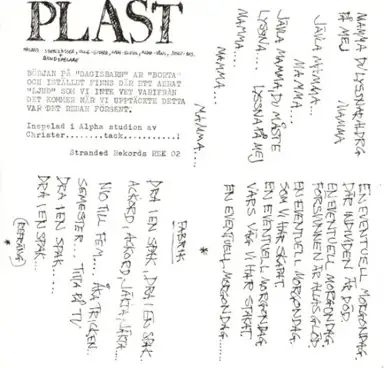 PLAST
BÖRJAN PÅ "DAGISBARN" ÄR "BORTA"
OCH ISTÄLLET FINNS DÄR ETT ANNAT
"LJUD" SOM VI INTE VET VARIFRÅN
DET KOMMER NÄR VI UPPTÄCKTE DETTA
VAR DET REDAN FÖRSENT.
Inspelad i Alpha studion av
Christer.......tack..........!
Stranded Rekords REE 02
MAMMA DU LYSSNAR ALDRIG
PÅ MEJ MAMMA
JÄVLA MAMMA..
MAMMA...
JÄVLA MAMMA, DU MÅSTE
LYSSNA.... LYSSNA PÅ MEJ
MAMMA....
MAMMA...
MAMMA....
EN EVENTUELL MORGONDAG.
DÄR INDIVIDEN ÄR DÖD.
EN EVENTUELL MORGONDAG.
FÖRSVINNEN ÄR ALLAS GLÖD.
EN EVENTUELL MORGONDAG.
SOM VI HAR SKAPAT.
EN EVENTUELL MORGONDAG.
VARS VÄG VI HAR STAKAT
EN EVENTUELL MORGONDAG......
*
FABRIK
DRA I EN SPAK, DRA I EN SPAK..
ACKORD, ACKORD, JÄKTA, JÄKTA...
NIO TILL FEM.... ÅKA TRICKEN..
SEMESTER... TITTA PÅ TV
DRA I EN SPAK.....
DRA I EN SPAK...
(REFRÄNG)
*